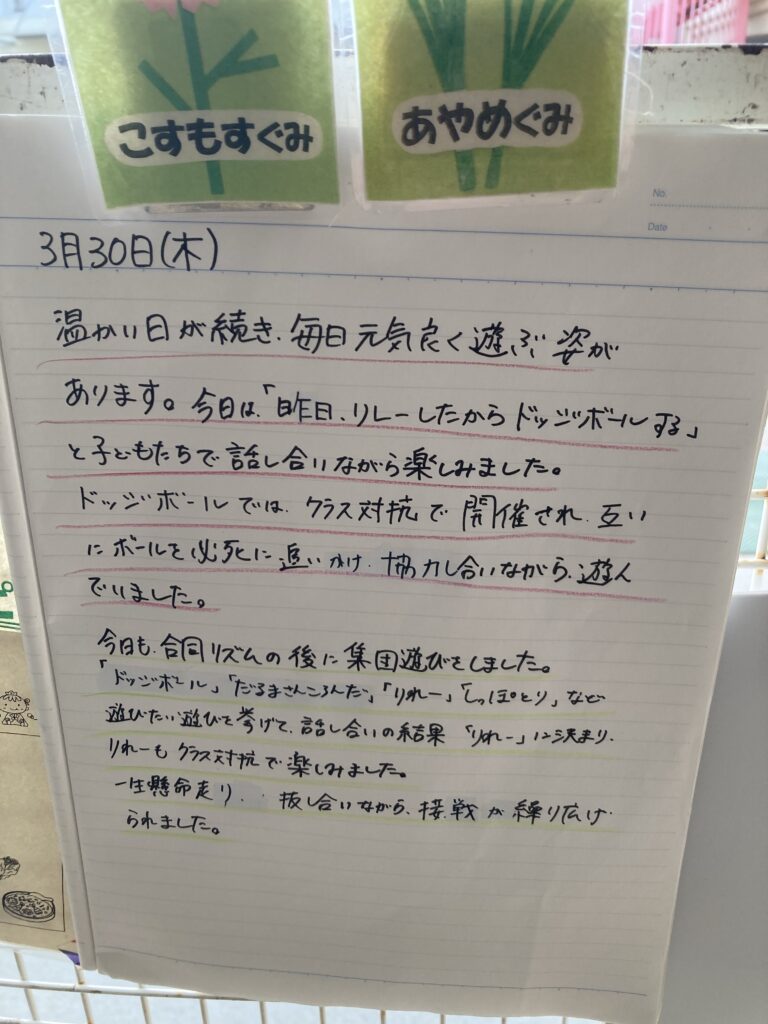 こすもすぐみ
あやめぐみ
No.
Date
3月30日(木)
温かい日が続き、毎日元気良く遊ぶ姿が
あります。今日は、「昨日、リレーしたからドッジボールする」
と子どもたちで話し合いながら楽しみました。
ドッジボールでは、クラス対抗で開催され、互い
にボールを必死に追いかけ、協力し合いながら、遊ん
でいました。
今日も、合同リズムの後に集団遊びをしました。
「ドッジボール」「だるまさんころんだ」「りれー」「しっぽとり」など
遊びたい遊びを挙げて、話し合いの結果「りれー」に決まり、
りれーもクラス対抗で楽しみました。
一生懸命走り、抜し合いながら、接戦が繰り広げ
られました。